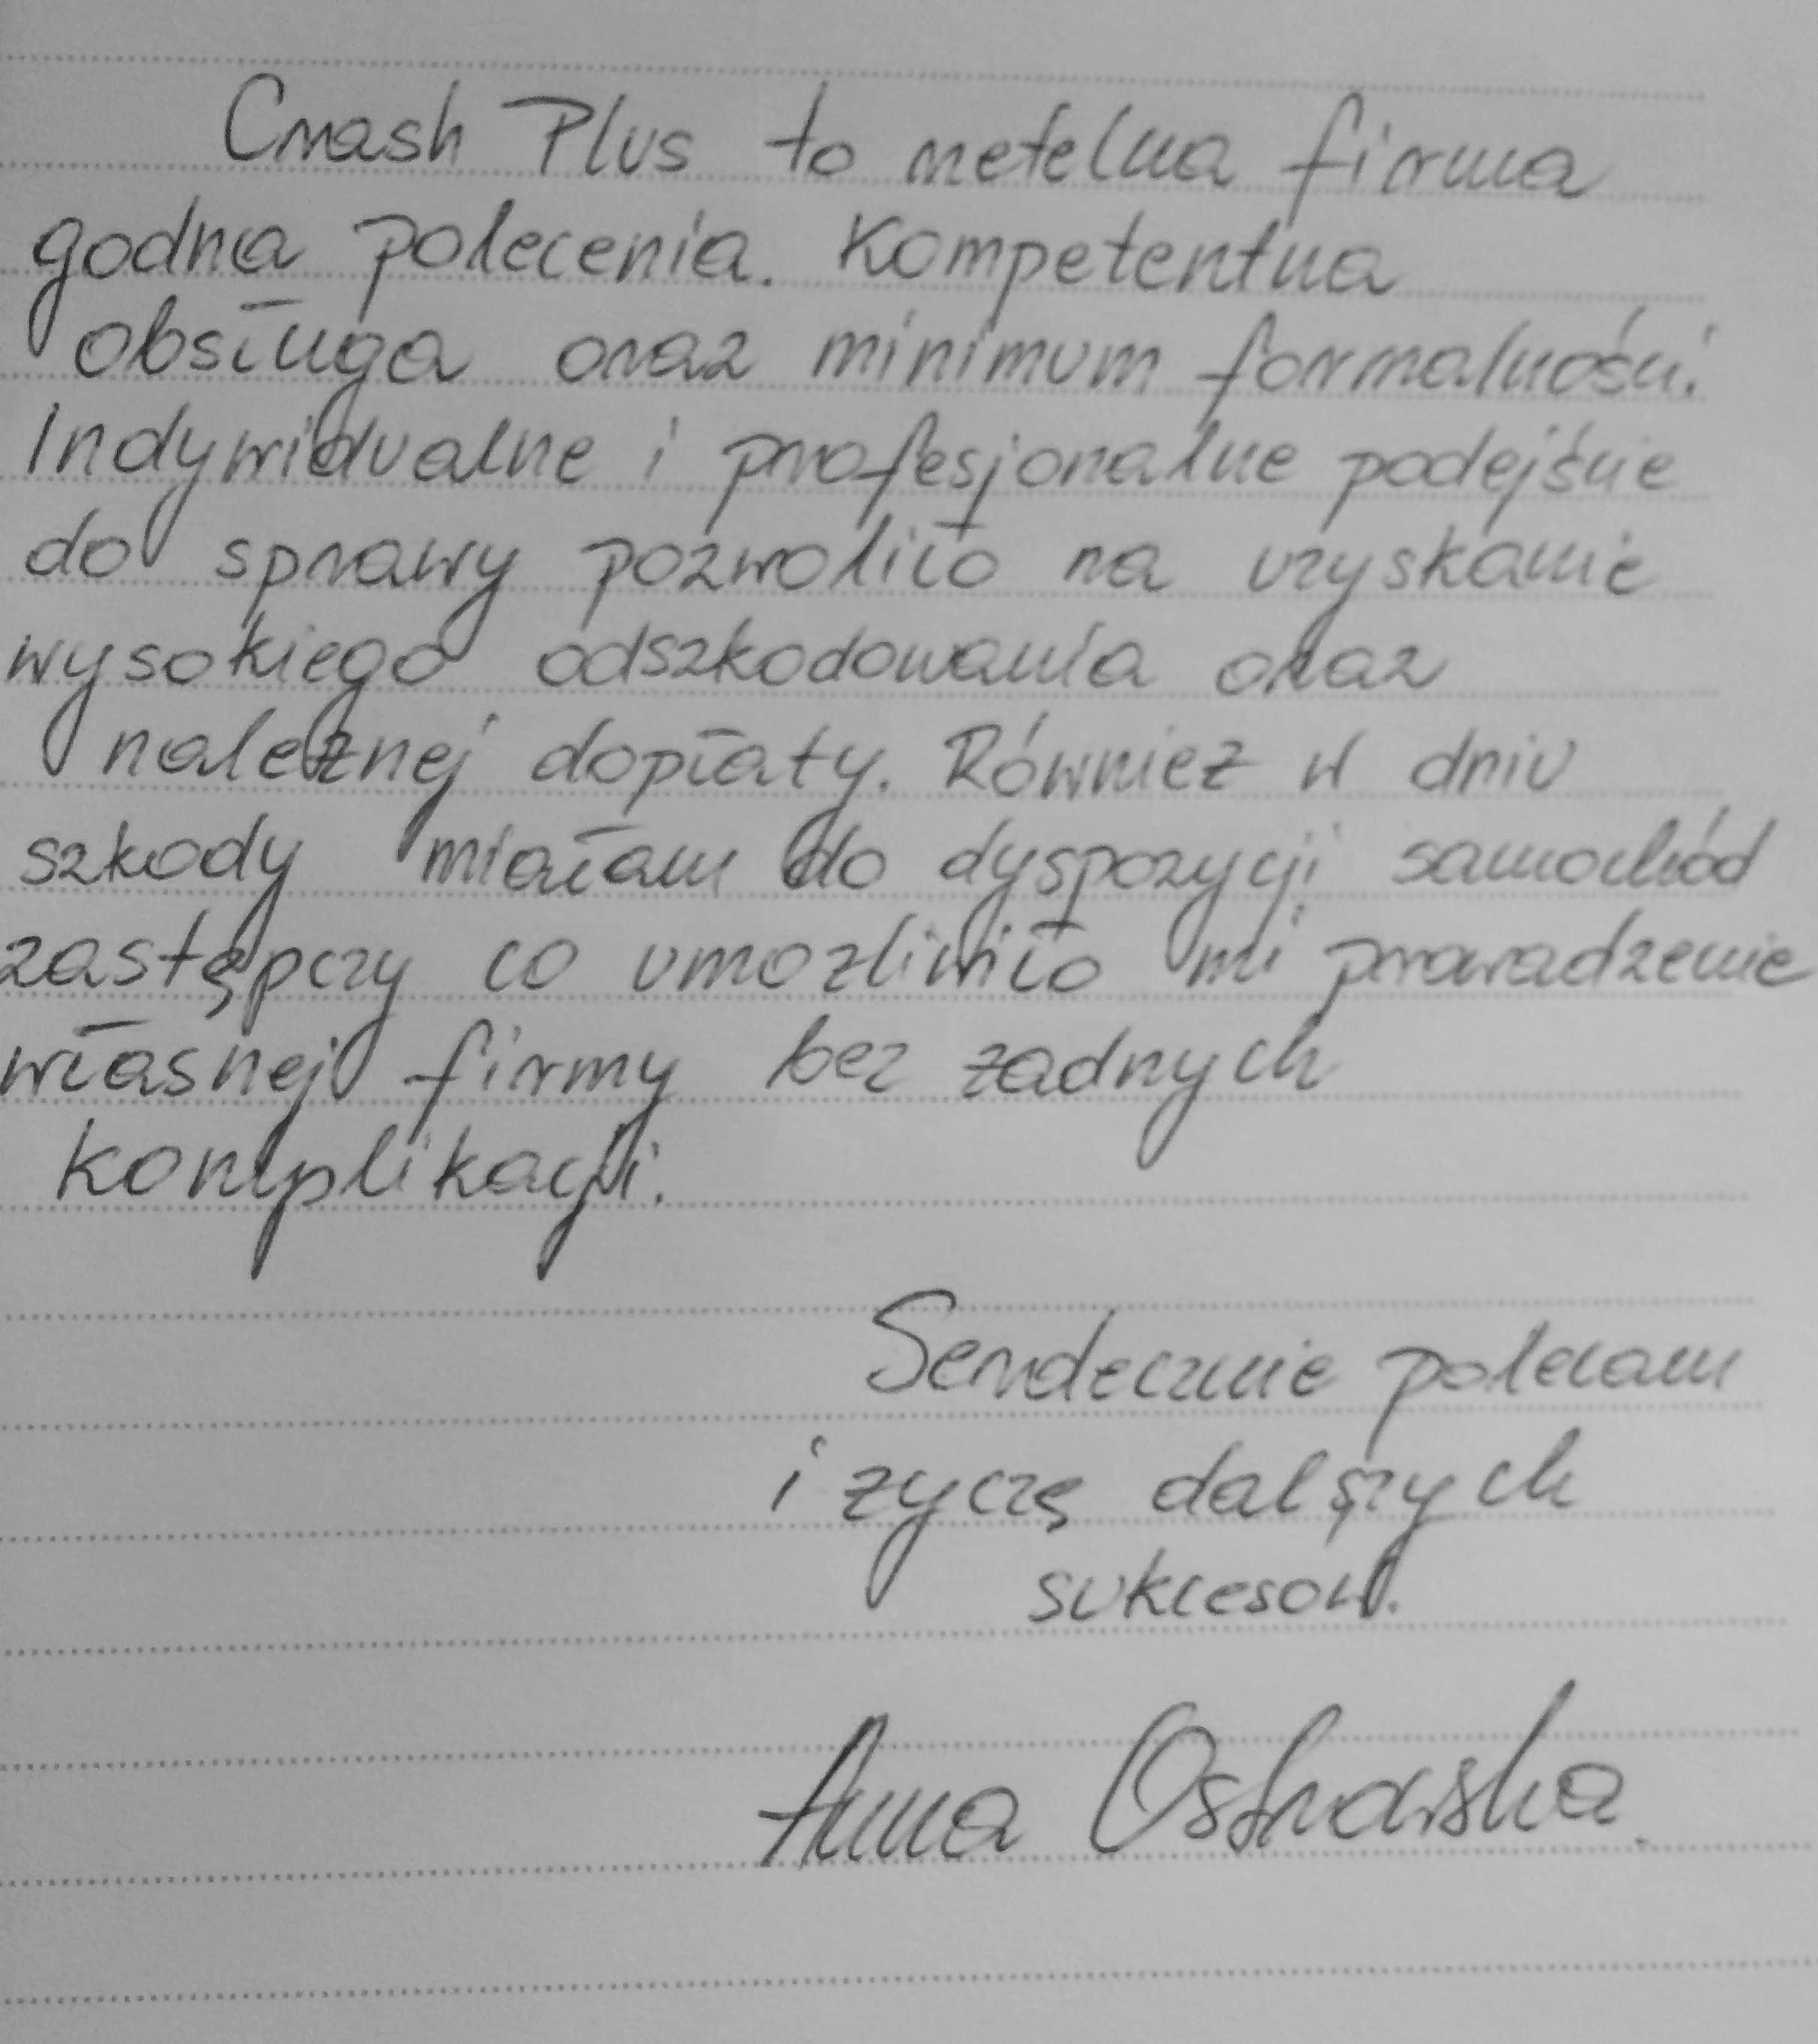 Crash Plus to rzetelna firma
godna polecenia. Kompetentna
obsługa oraz minimum formalności.
Indywidualne i profesjonalne podejście
do sprawy pozwoliło na uzyskanie
wysokiego odszkodowania oraz
należnej dopłaty. Również w dniu
szkody miałam do dyspozycji samochód
zastępczy co umożliwiło mi prowadzenie
własnej firmy bez żadnych
komplikacji.
Serdecznie polecam
i życzę dalszych
sukcesów.
Anna Ostrowska